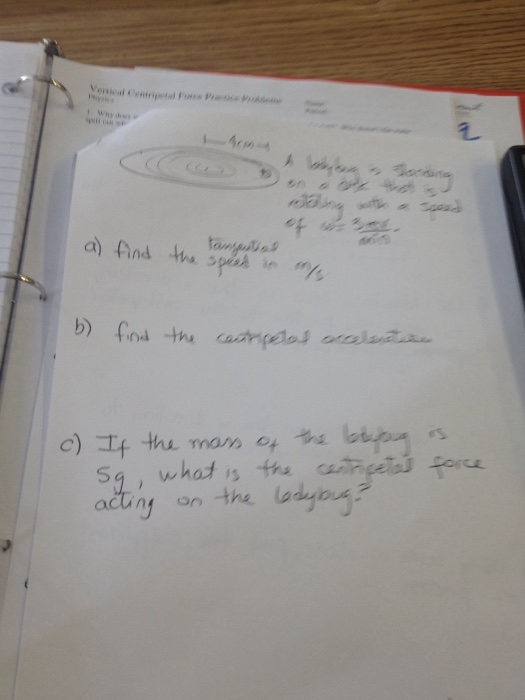 Vertical Centripetal Force Practice Problems
Physics
1. Why does
2
4cm
A ladybug is standing
on a disk that is
rotating with a speed
of ω = 3 rev
min
a) find the tangential
speed in m/s
b) find the centripetal acceleration
c) If the mass of the ladybug is
5g, what is the centripetal force
acting on the ladybug?